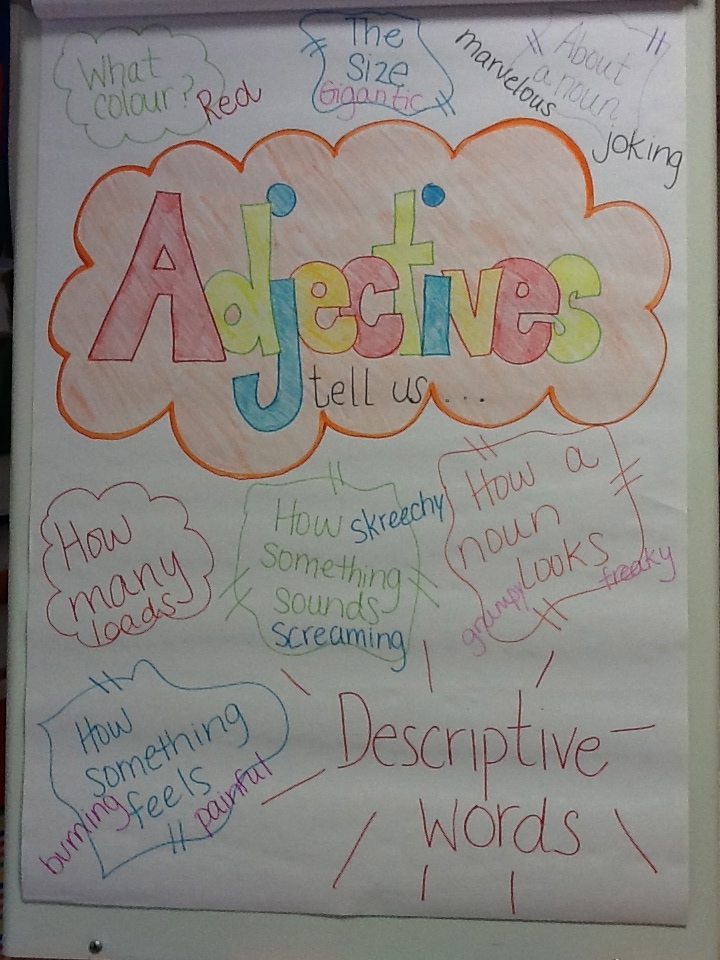 What
colour?
Red
The
Size
Gigantic
About
a noun
marvelous
joking
Adjectives
tell us...
How
many
loads
How
something
sounds
skreechy
screaming
How a
noun
looks
grumpy
freaky
How
something
feels
burning
painful
Descriptive
words